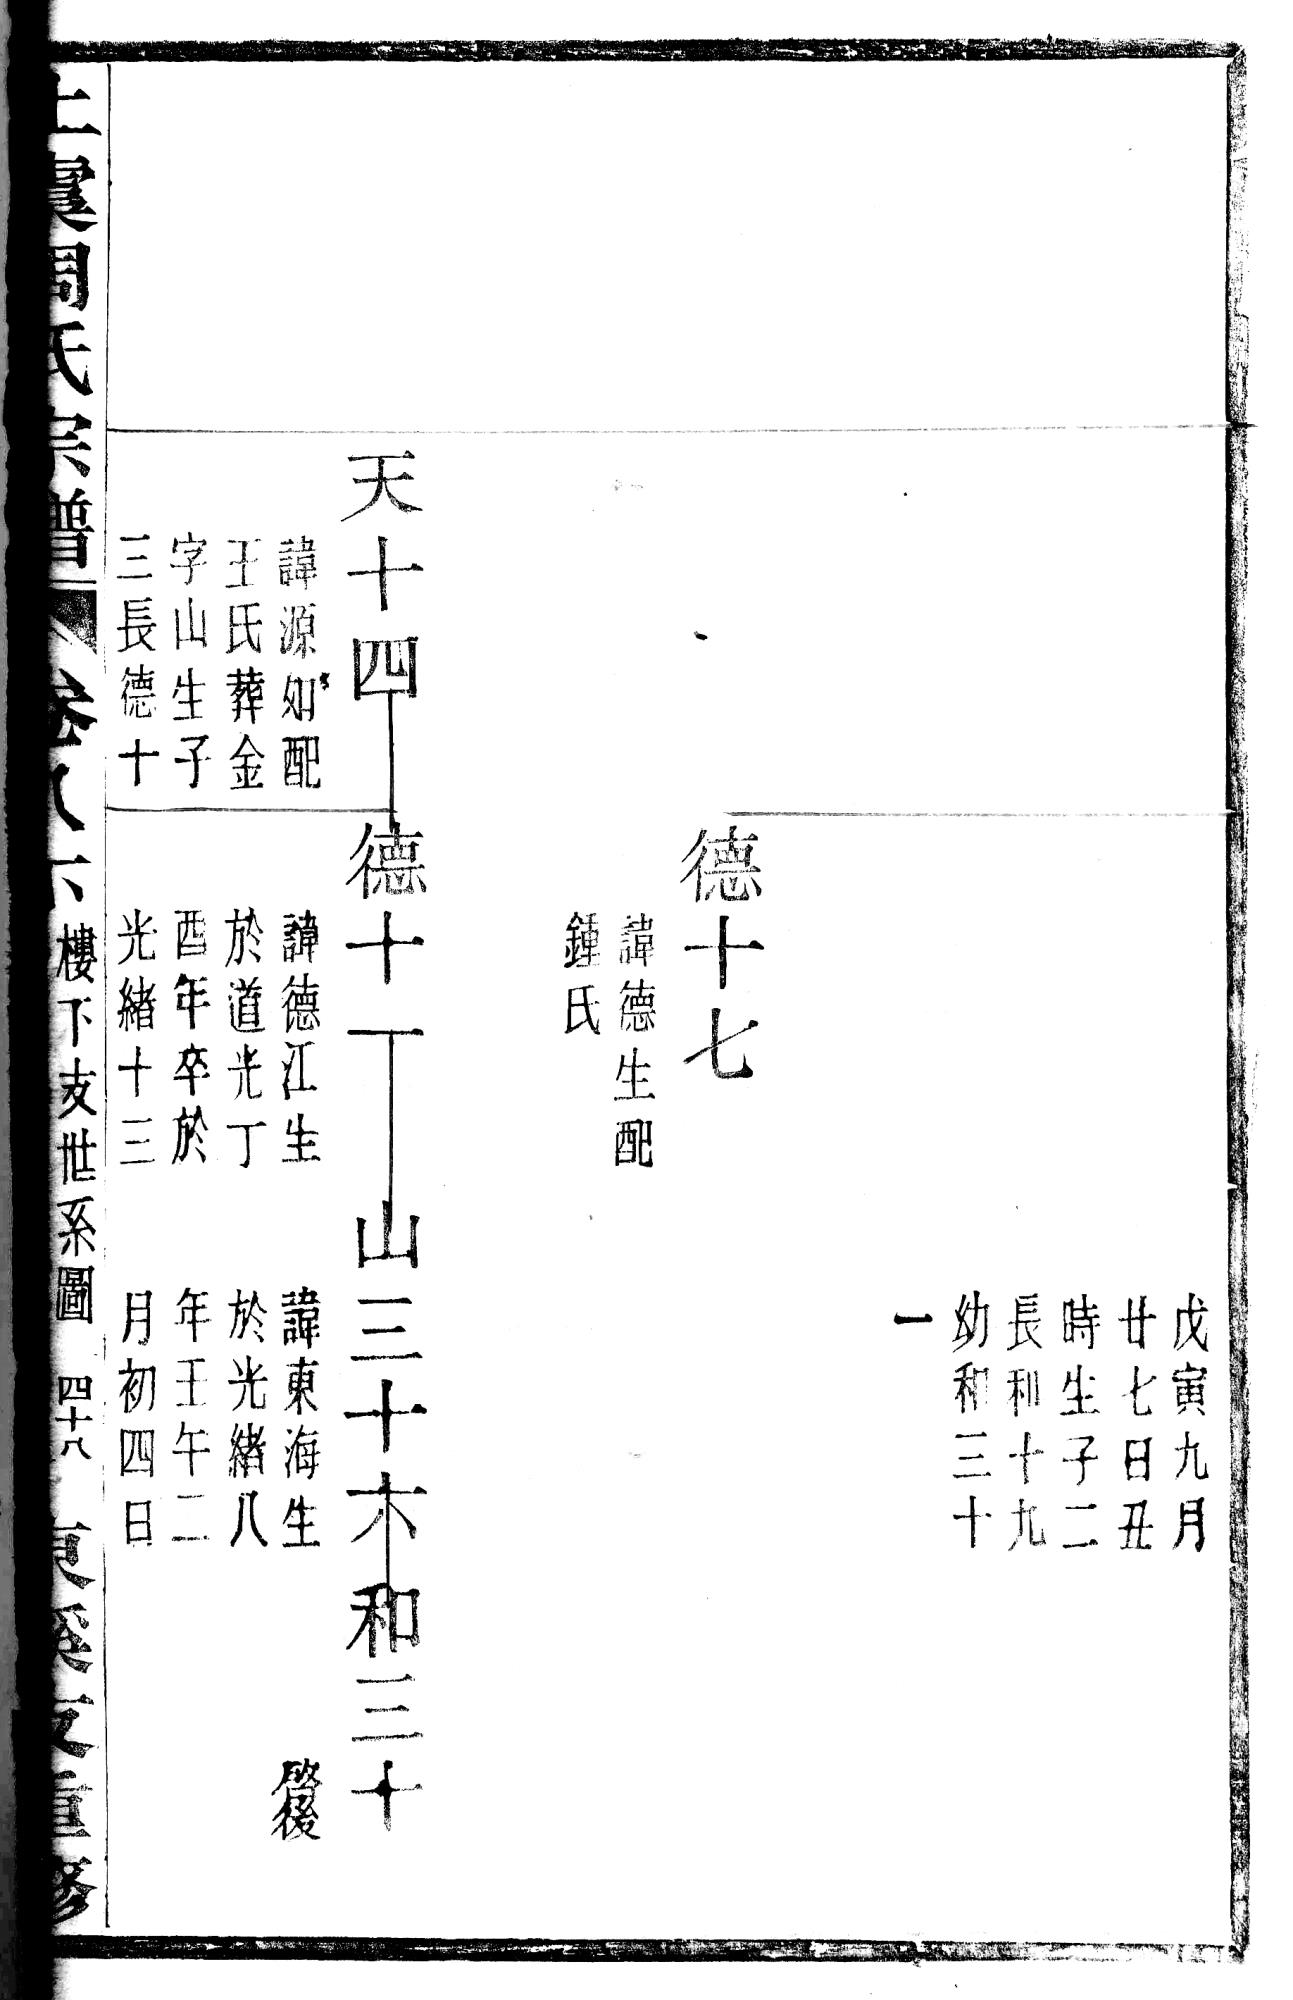 戊寅九月
廿七日丑
時生子二
長和十九
幼和三十
一
德十七
諱德生配
鍾氏
天十四
德十一
山三十六
和三十
諱源如配
王氏葬金
字山生子
三長德十
諱德江生
於道光丁
酉年卒於
光緒十三
諱東海生
於光緒八
年壬午二
月初四日
詳後
上虞周氏宗譜
卷八下
樓下支世系圖
四十八